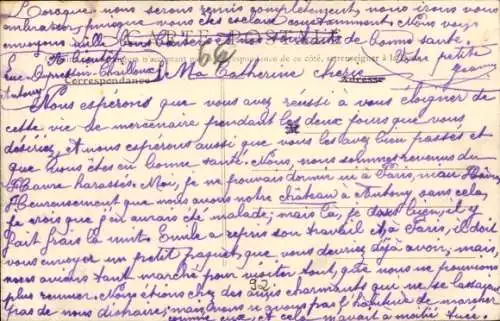 Lorsque nous serons remis complètement, nous irons vous
embrasser, puisque vous êtes esclave constamment. Nous vous
envoyons mille bons baisers et nos souhaits de bonne santé.
CARTE POSTALE
A bientôt Votre petite
64
rue Dupressin-Chaillou
Antony
Ma Catherine chérie
Correspondance
Adresse
Nous espérons que vous avez réussi à vous éloigner de
cette vie de mercenaire pendant les deux jours que vous
désiriez, et nous espérons aussi que vous les avez bien passés et
que vous êtes en bonne santé. Nous, nous sommes revenus du
Havre harassés. Moi, je ne pouvais dormir ni à Paris, ni au Havre,
Heureusement que nous avons notre château à Antony sans cela,
je crois que j'en aurais été malade; mais là, je dors bien, il y
fait frais la nuit. Emile a repris son travail à Paris, il doit
vous envoyer un petit paquet, que vous devriez déjà avoir; mais,
nous avions tant marché pour visiter tout, que nous ne pouvions
plus remuer. Nous étions chez des amis charmants qui ne se lassaient
pas de nous distraire; mais, nous n'avons pas l'habitude de marcher
comme eux, et cela m'avait à moitié tuée.
92